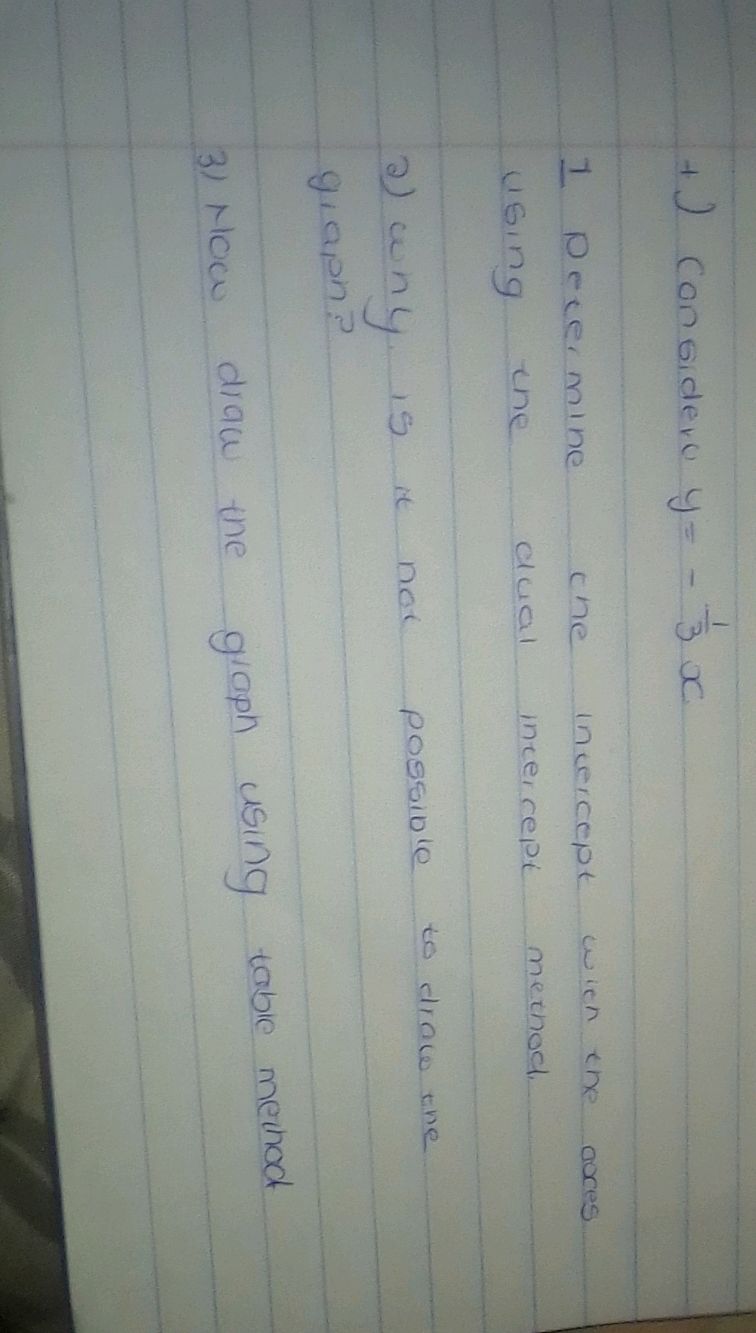 +) Consider y = - 1/3 x
1 Determine the intercept with the axes
using the dual intercept method.
2) Why is it not possible to draw the
graph?
3) Now draw the graph using table method